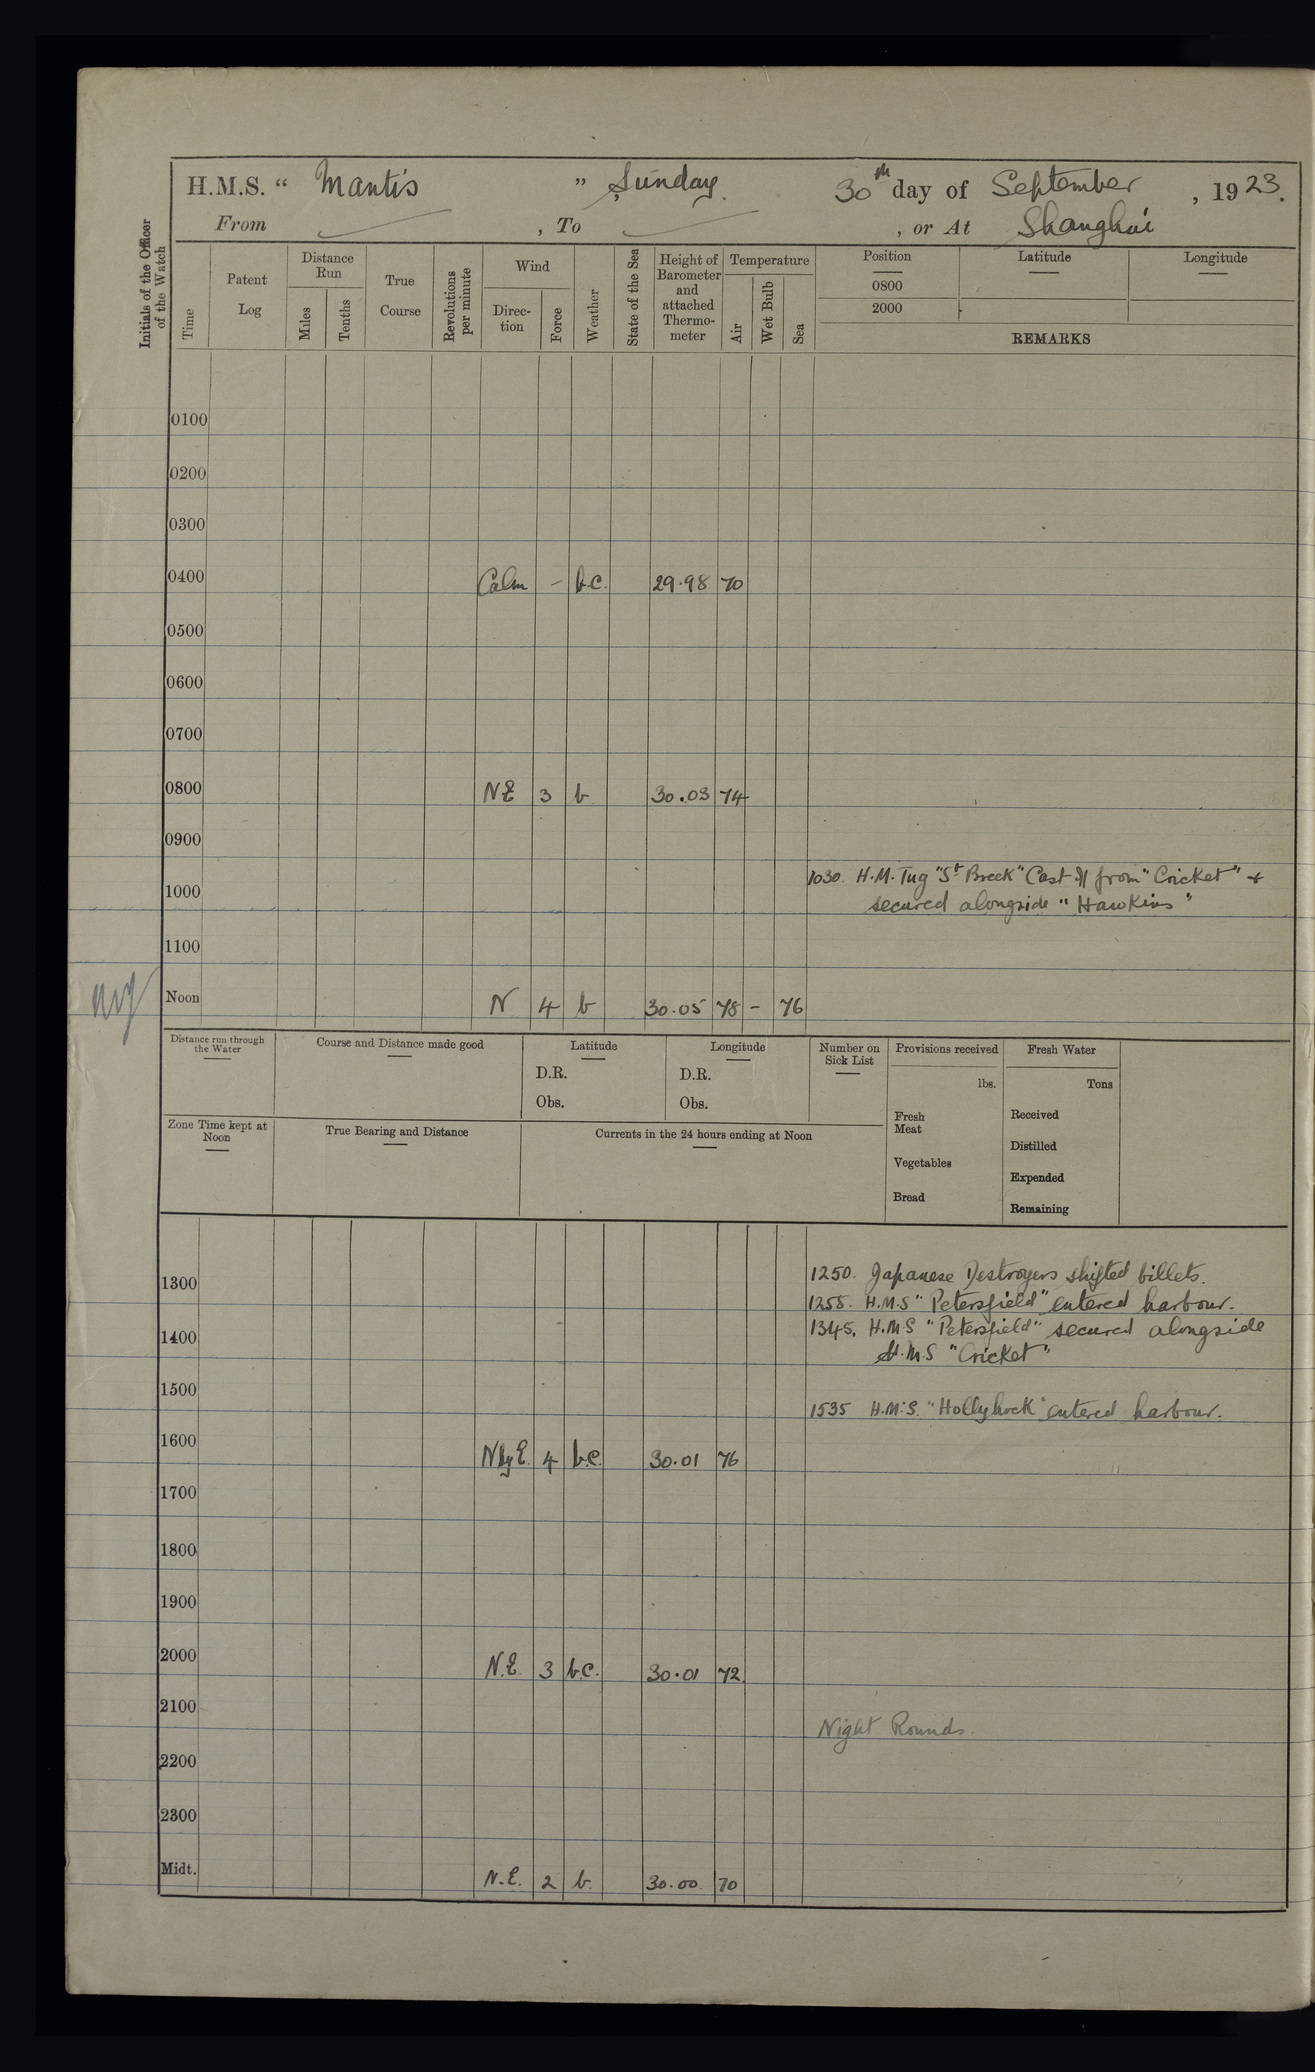 H.M.S. “ Mantis ” , Sunday. 30th day of September , 1923.
From , To , or At Shanghai
Initials of the Officer of the Watch
Time
Patent Log
Distance Run
Miles
Tenths
True Course
Revolutions per minute
Wind
Direc-tion
Force
Weather
State of the Sea
Height of Barometer and attached Thermo-meter
Temperature
Air
Wet Bulb
Sea
Position Latitude Longitude
0800
2000
REMARKS
0100
0200
0300
0400 Calm - b.c. 29.98 70
0500
0600
0700
0800 NE 3 b 30.03 74
0900
1030. H.M. Tug "St Breck" Cast off from "Cricket" &
1000
secured alongside "Hawkins"
1100
Noon N 4 b 30.05 78 - 76
Distance run through the Water
Course and Distance made good
Latitude
D.R.
Obs.
Longitude
D.R.
Obs.
Number on Sick List
Provisions received
lbs.
Fresh Meat
Vegetables
Bread
Fresh Water
Tons
Received
Distilled
Expended
Remaining
Zone Time kept at Noon
True Bearing and Distance
Currents in the 24 hours ending at Noon
1250. Japanese Destroyers shifted billets.
1300
1258. H.M.S "Petersfield" entered harbour.
1345. H.M.S "Petersfield" secured alongside
1400
H.M.S "Cricket"
1500
1535 H.M.S. "Hollyhock" entered harbour.
1600 NbyE. 4 b.c. 30.01 76
1700
1800
1900
2000 N.E. 3 b.c. 30.01 72.
2100
Night Rounds.
2200
2300
Midt. N.E. 2 b. 30.00 70